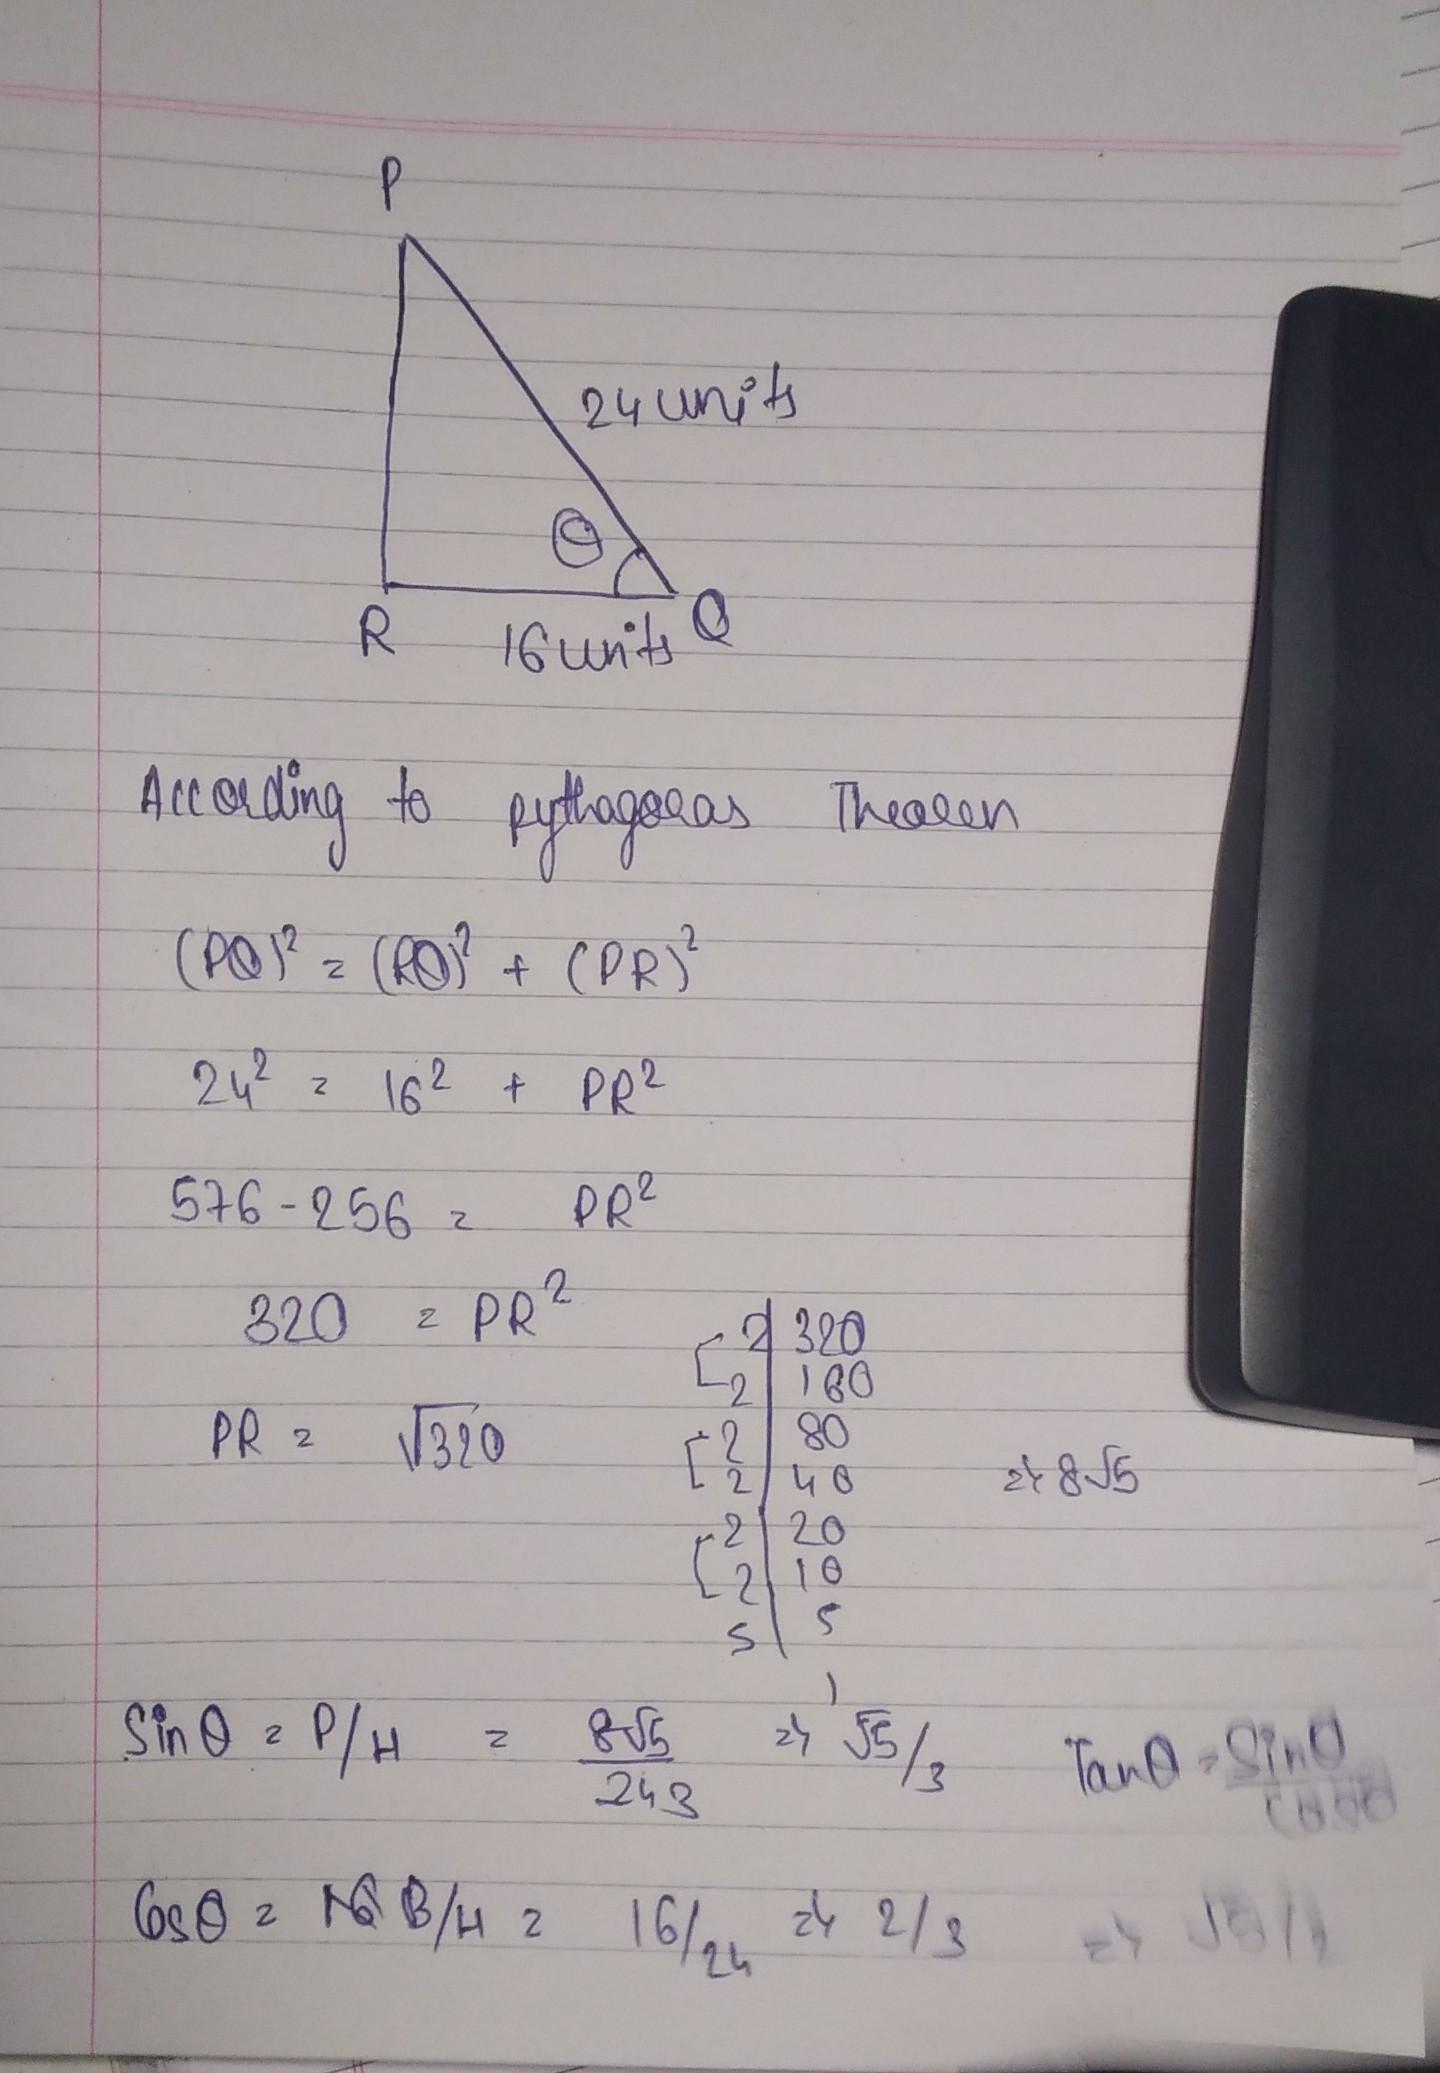 P
24 units
θ
R 16 units Q
According to pythagoras Theoren
(PQ)² = (RQ)² + (PR)²
24² = 16² + PR²
576 - 256 = PR²
320 = PR²
2 | 320
2 | 160
PR = √320
2 | 80
2 | 40
⇒ 8√5
2 | 20
2 | 10
5 | 5
1
Sinθ = P/H = 8√5/243 ⇒ √5/3
Tanθ = Sinθ/Cosθ
Cosθ = B/H = 16/24 ⇒ 2/3